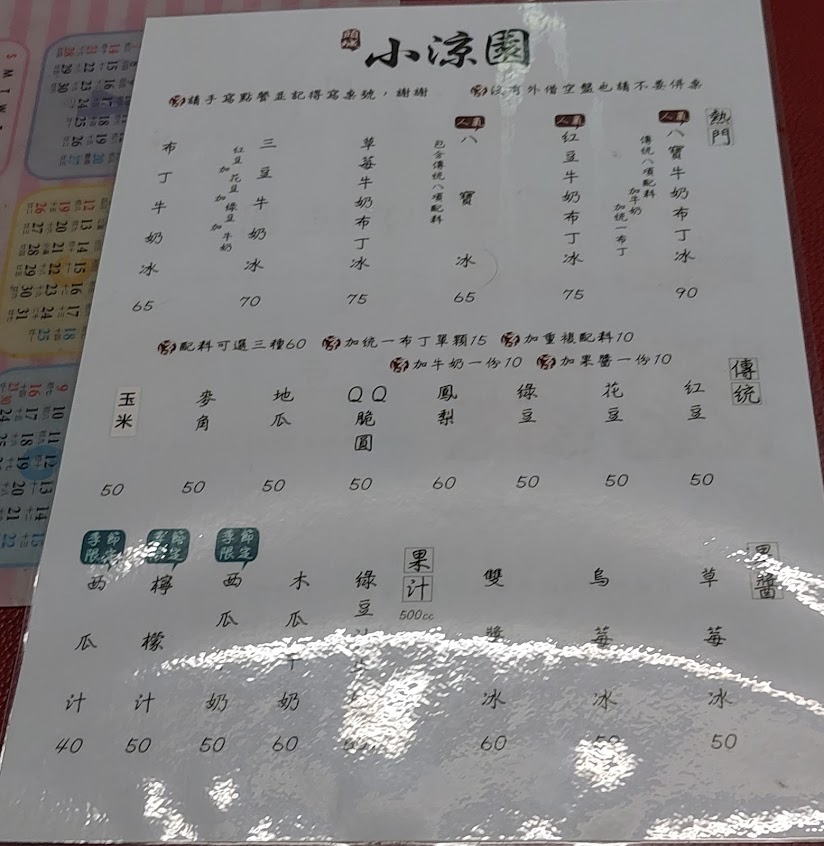 頭城
小涼園
請手寫點餐並記得寫桌號，謝謝
沒有外借空盤也請不要併桌
熱門
人氣
八寶牛奶布丁冰
傳統八項配料
加牛奶
加統一布丁
90
人氣
紅豆牛奶布丁冰
75
人氣
八寶冰
包含傳統八項配料
65
草莓牛奶布丁冰
75
三豆牛奶冰
紅豆加花豆加綠豆加牛奶
70
布丁牛奶冰
65
配料可選三種60
加統一布丁單顆15
加重複配料10
加牛奶一份10
加果醬一份10
傳統
紅豆
50
花豆
50
綠豆
50
鳳梨
60
QQ脆圓
50
地瓜
50
麥角
50
玉米
50
果醬
草莓冰
50
烏莓冰
雙醬冰
60
果汁
500cc
綠豆
木瓜牛奶
60
季節限定
西瓜奶
50
季節限定
檸檬汁
50
季節限定
西瓜汁
40